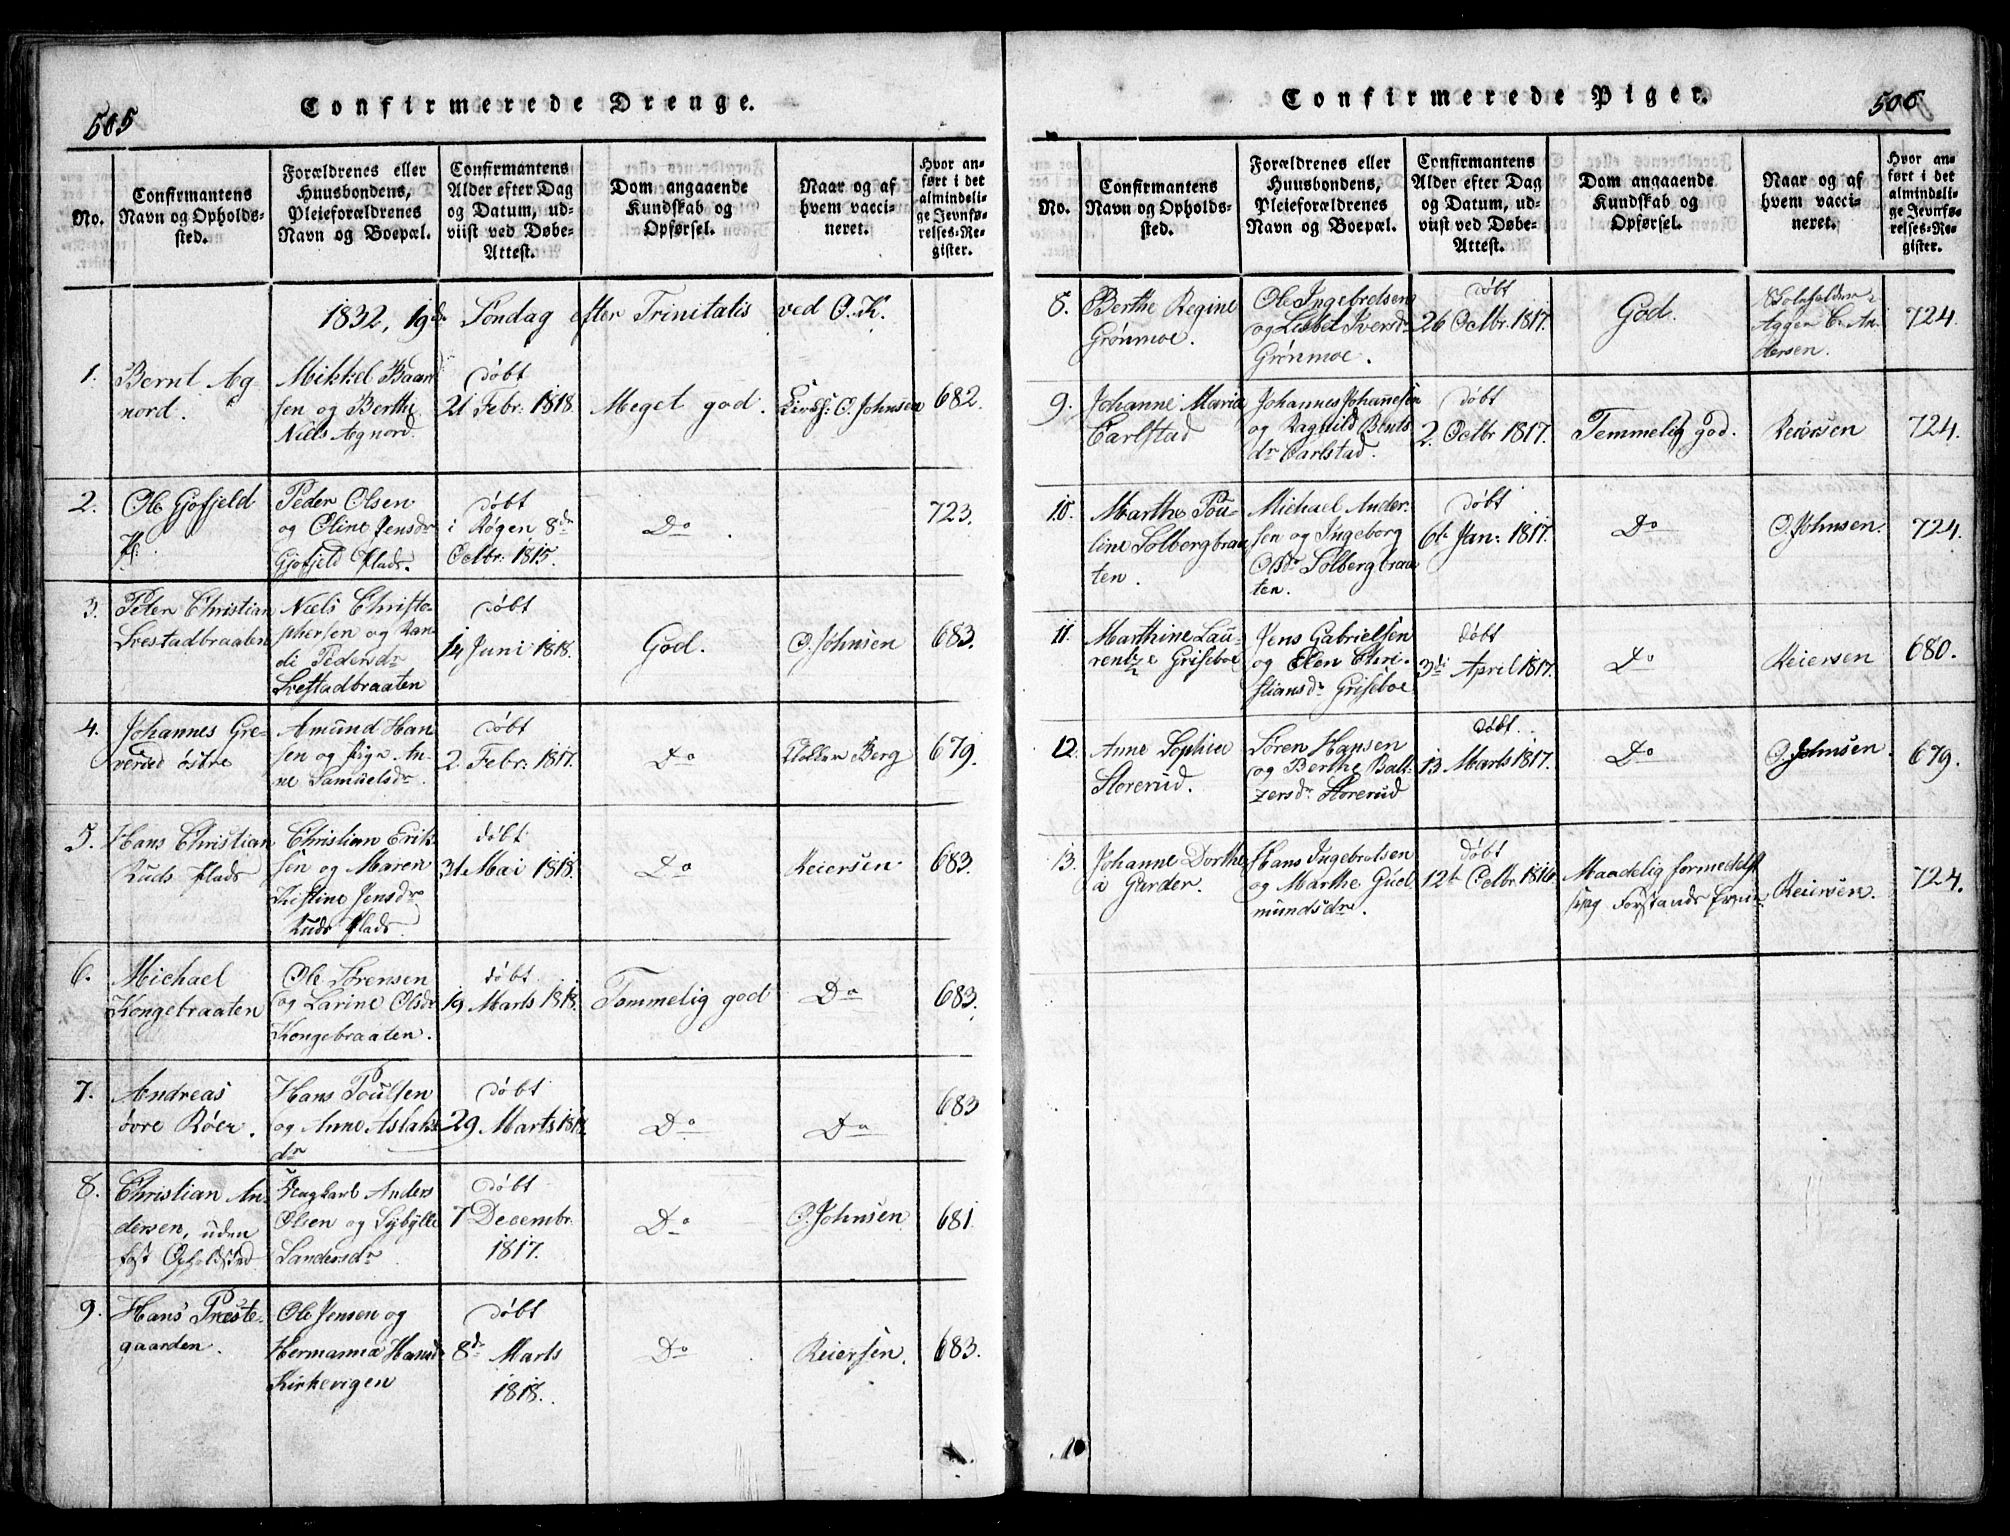 505
Confirmerede Drenge.
No.
Confirmantens
Navn og Opholds-
sted.
Forældrenes eller
Huusbondens,
Pleieforældrenes
Navn og Boepæl.
Confirmantens
Alder efter Dag
og Datum, ud-
viist ved Døbe-
Attest.
Dom angaaende
Kundskab og
Opførsel.
Naar og af
hvem vacci-
neret.
Hvor an-
ført i det
almindeli-
ge Jevnfø-
relses-Re-
gister.
1832, 19de Søndag efter Trinitatis ved O. K.
1.
Bernt Ag-
nord.
Mikkel Baar
sen og Berthe
Niels Agnord.
døbt
21 Febr: 1818.
Meget god.
O. Johnsen
682.
2.
Ole Gjofjeld
Pl:
Peder Olsen
og Eline Jensdr
Gjofjeld Plads.
døbt
i Røgen 8de
Octbr: 1815.
Do
723.
3.
Peter Christian
Svestadbraaten
Niels Christo-
phersen og Ran-
di Pedersdr
Svestadbraaten
døbt
14 Juni 1818.
God.
O. Johnsen
683.
4.
Johannes Gre-
verud østre
Amund Han
sen og Pige An-
ne Samuelsdr.
døbt
2. Febr: 1817.
Do
Berg
679.
5.
Hans Christian
Ruds Plads
Christian Erik
sen og Maren
Kistine Jensdr
Ruds Plads.
døbt
31 Mai 1818.
Do
Reiersen.
683.
6.
Michael
Kongebraaten
Ole Sørensen
og Larine Olsdr
Kongebraaten.
døbt
19 Marts 1818.
Temmelig god
Do
683.
7.
Andreas
øvre Røer.
Hans Poulsen
og Anne Aslaks
dr
døbt
29 Marts 1818.
Do
Do
683
8.
Christian An-
dersen, uden
fast Opholdsted
Anders
Olsen og Sybylle
Sandersdr
døbt
7 Decembr.
1817.
Do
O. Johnsen
681.
9.
Hans Præste-
gaarden.
Ole Jensen og
Hermanna Hansd
Kirkevigen
døbt
8de Marts
1818.
Do
Reiersen.
683.
506
Confirmerede Piger.
No.
Confirmantens
Navn og Opholds-
sted.
Forældrenes eller
Huusbondens,
Pleieforældrenes
Navn og Boepæl.
Confirmantens
Alder efter Dag
og Datum, ud-
viist ved Døbe-
Attest.
Dom angaaende
Kundskab og
Opførsel.
Naar og af
hvem vacci-
neret.
Hvor an-
ført i det
almindeli-
ge Jevnfø-
relses-Re-
gister.
8.
Berthe Regine
Grønmoe.
Ole Ingebretsen
og Lisbet Iversdr
Grønmoe.
døbt
26 Octbr. 1817.
God.
Aggen C. An-
dersen.
724.
9.
Johanne Maria
Carlstad
Johannes Johanesen
og Ragnild Bents
dr Carlstad.
døbt
2. Octbr 1817.
Temmelig god.
Reiersen
724.
10.
Marthe Pou-
line Solbergbraa
ten.
Michael Ander-
sen og Ingeborg
Olsdr Solbergbraa
ten.
døbt
6te Jan: 1817.
Do
O. Johnsen.
724.
11.
Marthine Lau-
rentze Griseboe
Jens Gabrielsen
og Elen Chri-
stiansdr Griseboe
døbt
3di April 1817.
Do
Reiersen
680.
12.
Anne Sophia
Storerud.
Søren Hansen
og Berthe Balt-
zersdr Storerud
døbt.
13 Marts 1817.
Do
O. Johnsen.
679.
13.
Johanne Dorthe
Garder.
Hans Ingebretsen
og Marthe Gud
mundsdr.
døbt
12te Octbr. 1816
Maadelig formedelst
svag Forstands Evne
Reiersen.
724.